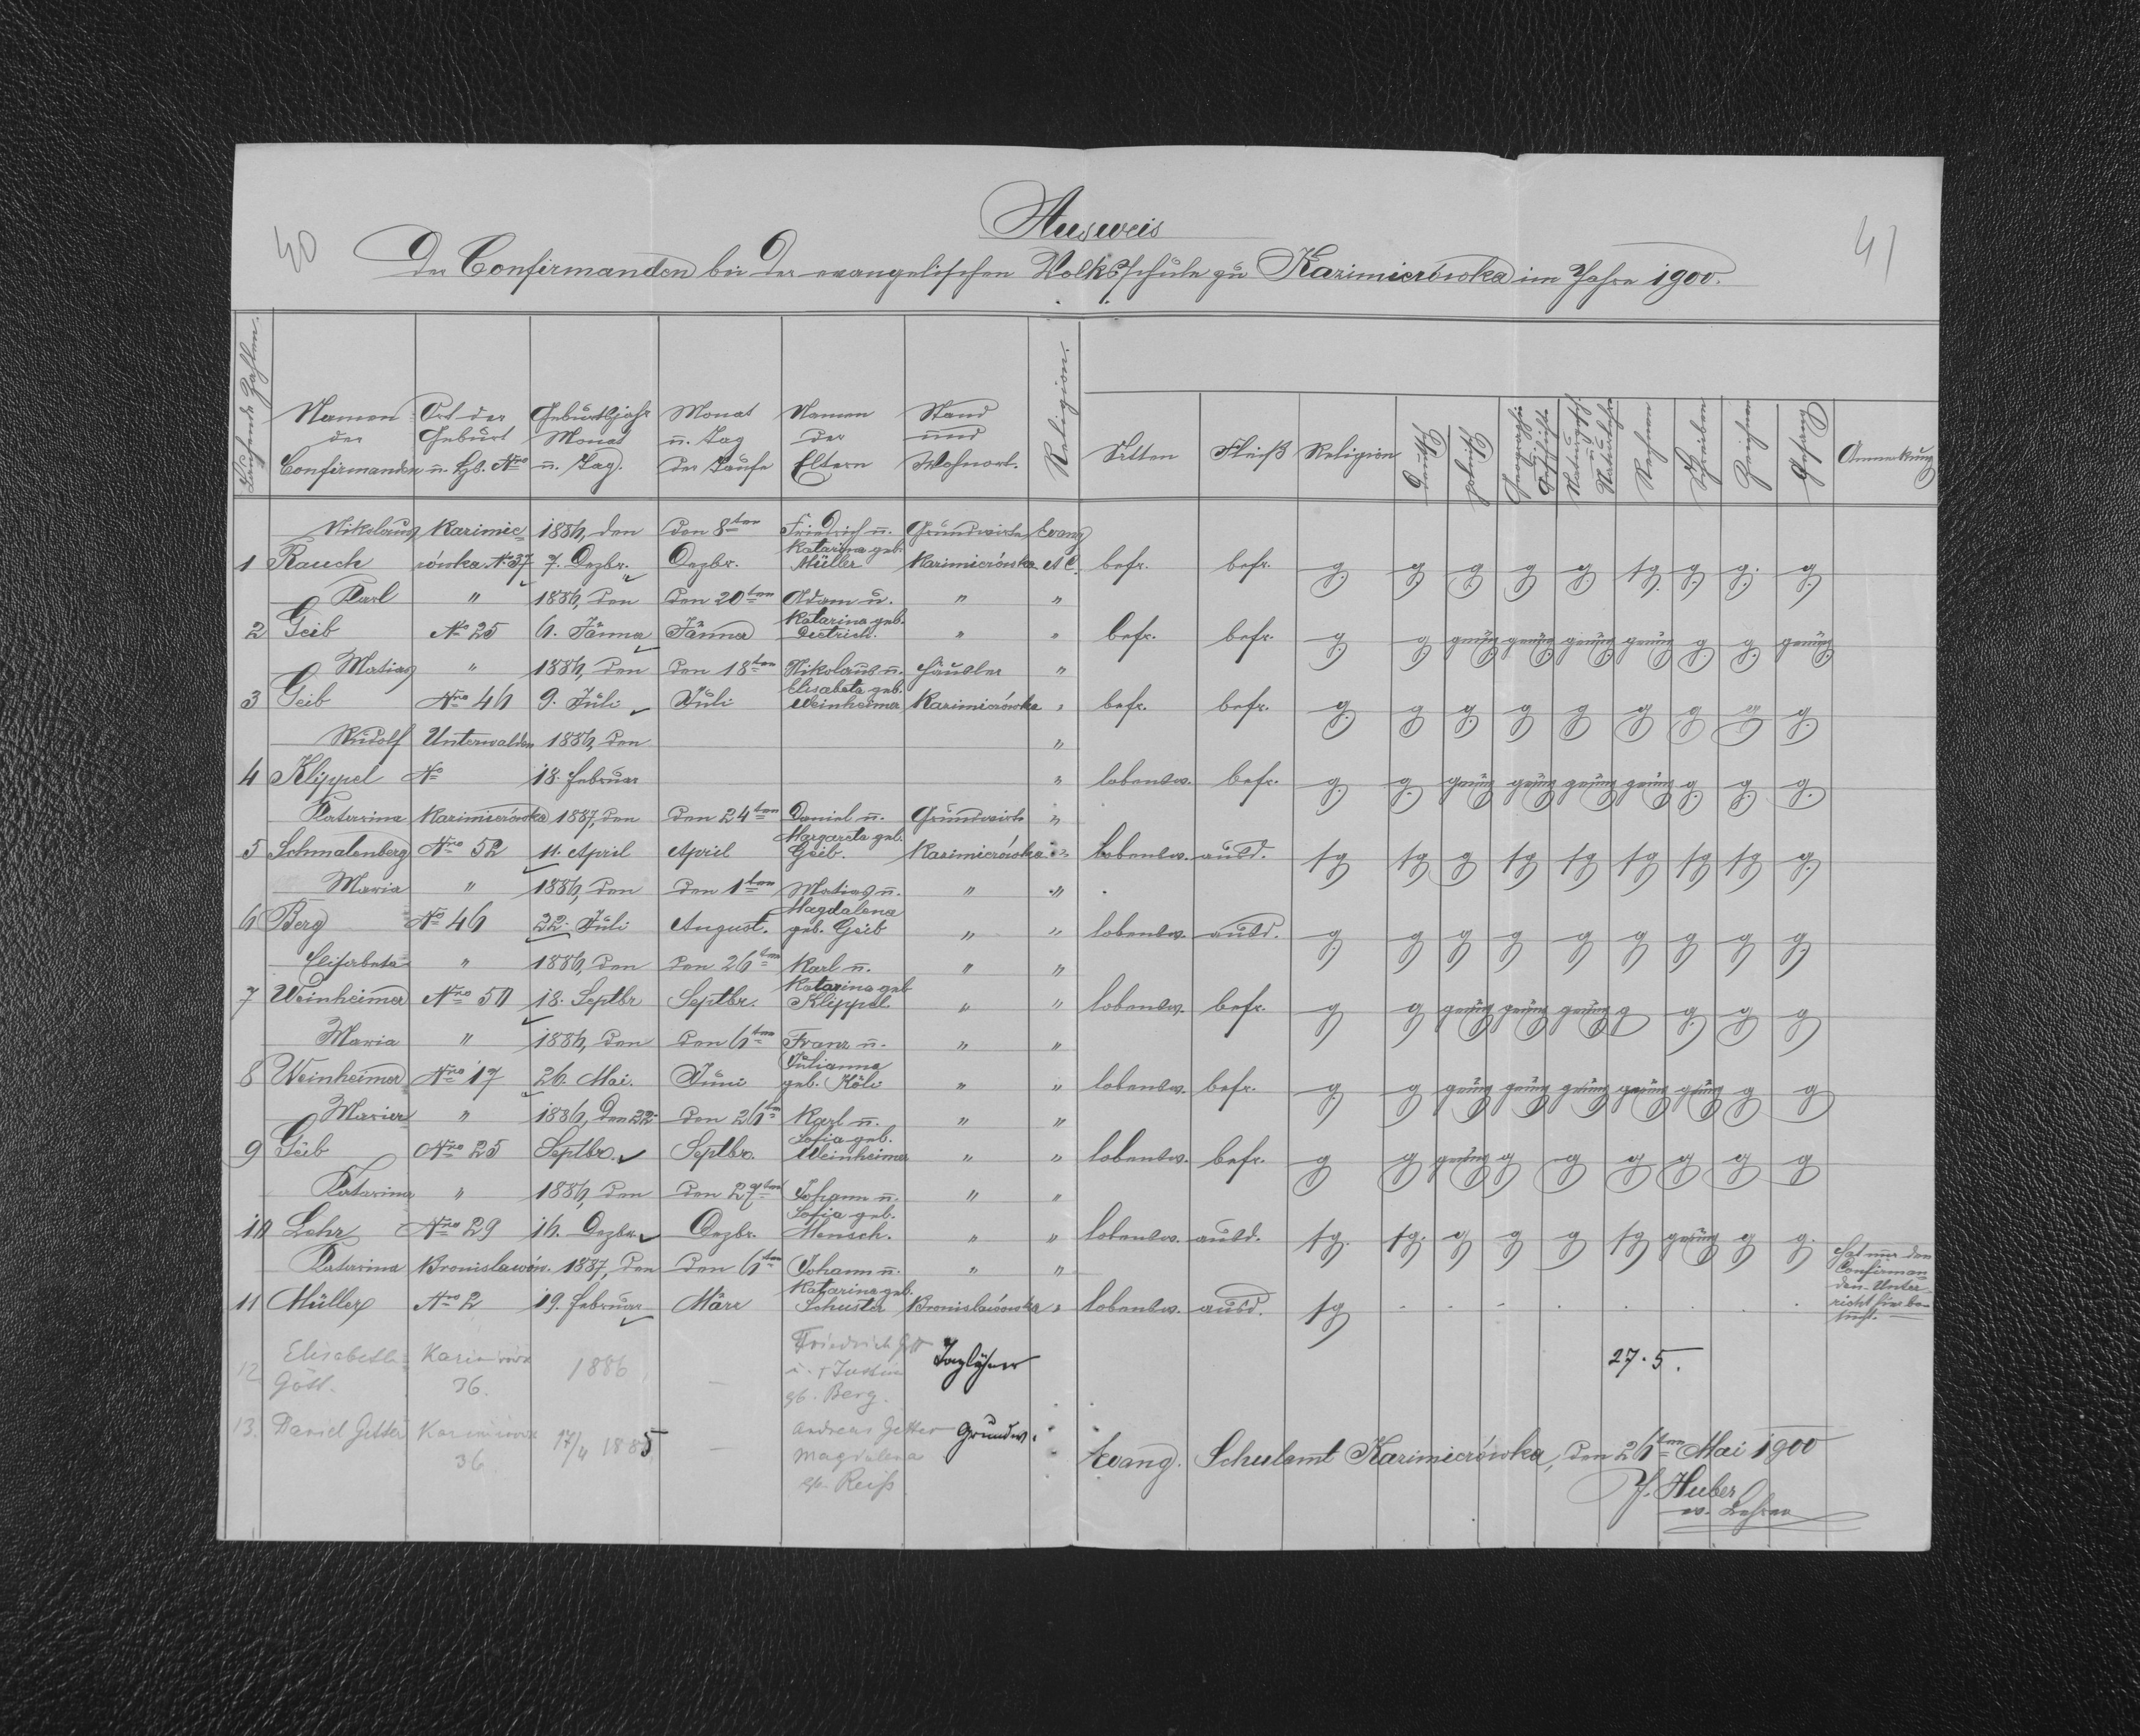 40
Ausweis
41
der Confirmanden bei der evangelischen Volksschule zu Kazimierówka im Jahre 1900.
Laufende Zahlen.
Namen der Confirmanden
Ort der Geburt u. Hs. Nro
Geburtsjahr Monat u. Tag.
Monat u. Tag der Taufe
Namen der Eltern
Stand und Wohnort.
Religion.
Sitten
Fleiß
Religion
deutsch
polnisch
Geografie u. Geschichte
Naturgesch. u. Naturlehre
Rechnen
Schreiben
Zeichnen
Gesang
Anmerkung
Nikolaus Kazimie- 1886, den den 8ten Friedrich u. Grundwirte Evang
Katarina geb.
1 Rauch rówka No 37 7. Dezbr. Dezbr. Müller Kazimierówka A C. befr. befr. g. g g g g. sg. g g. g.
Karl " 1886, den den 20ten Adam u. " "
Katarina geb.
2 Geib No 25 6. Jänner Jänner Dietrich. " " befr. befr. g. g genüg genüg genüg genüg g. g. genüg.
Matias " 1886, den den 18ten Nikolaus u. Häusler "
Elisabeta geb.
3 Geib Nro 46 9. Juli Juli Weinheimer Kazimierówka " befr. befr. g. g g. g g g g g g.
Rudolf Unterwalden 1886, den "
4 Klippel No 18. Februar " lobensw. befr. g. g. genüg genüg genüg genüg g. g. g.
Katarina Kazimierówka 1887, den den 24ten Daniel u. Grundwirte "
Margareta geb.
5 Schmalenberg Nro 52 11. April April Geib. Kazimierówka " lobensw. ausd. sg sg g sg sg sg sg sg g.
Maria " 1886, den den 1ten Matias u. " "
Magdalena
6 Berg No 46 22. Juli August. geb. Geib " " lobensw. ausd. g. g g g g g g g g.
Elisabeta " 1886, den den 26ten Karl u. " "
Katarina geb
7 Weinheimer Nro 50 18. Septbr Septbr. Klippel. " " lobensw. befr. g g genüg genüg genüg g g. g g
Maria " 1886, den den 6ten Franz u. " "
Julianna
8 Weinheimer Nro 17 26. Mai. Juni geb. Köli " " lobensw. befr. g. g genüg genüg genüg genüg genüg g g
Maria " 1886, den 22. den 26ten Karl u. " "
Sofia geb.
9 Geib Nro 25 Septbr. Septbr. Weinheimer " " lobensw. befr. g g genüg g g g g g g
Katarina " 1886, den den 27ten Johann u. " "
Sofia geb.
10 Lohr Nro 29 16. Dezbr. Dezbr. Mensch. " " lobensw. ausd. sg. sg. g g g sg genüg g g.
Katarina Bronislawów. 1887, den den 6ten Johann u. " "
Katarina geb.
11 Müller Nro 2 19. Februar März Schuster Bronislawówka " lobensw. ausd. sg
Hat nur den
Confirman-
den-Unter-
richt hier be-
sucht.
12 Elisabeth Gött. 36. 1886. — Friedrich Gött u. Justine gb. Berg. Taglöhner
27.5.
13. Daniel Getter 36. 17/4 1885 — Andreas Getter Magdalena gb. Reiß Grundw.
Evang. Schulamt Kazimierówka, den 26ten Mai 1900
J. Huber
w. Lehrer